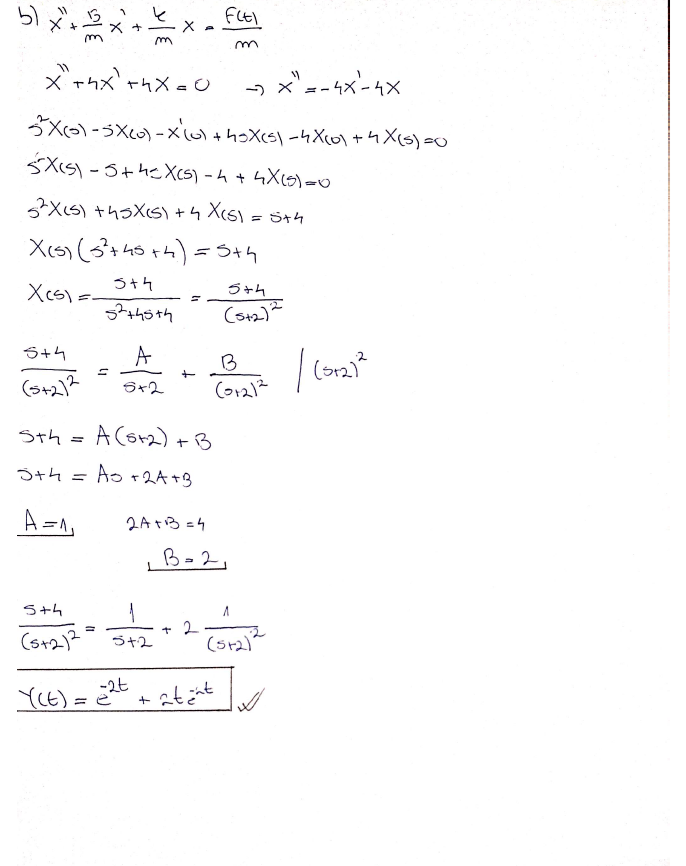 b) x'' + B/m x' + k/m x = F(t)/m
x'' + 4x' + 4x = 0 → x'' = -4x' - 4x
s²X(s) - sX(0) - x'(0) + 4sX(s) - 4X(0) + 4X(s) = 0
s²X(s) - s + 4sX(s) - 4 + 4X(s) = 0
s²X(s) + 4sX(s) + 4X(s) = s+4
X(s)(s²+4s+4) = s+4
X(s) = s+4/s²+4s+4 = s+4/(s+2)²
s+4/(s+2)² = A/s+2 + B/(s+2)² /(s+2)²
s+4 = A(s+2) + B
s+4 = As + 2A + B
A = 1, 2A+B = 4
B = 2
s+4/(s+2)² = 1/s+2 + 2 1/(s+2)²
Y(t) = e^-2t + 2te^-2t ✓